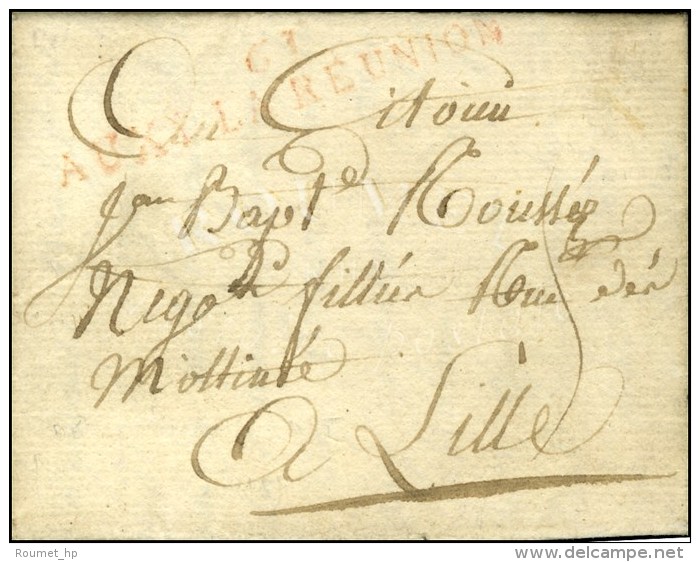 61
AUXI-LA-RÉUNION
Au Citoien
Jean Bapte Rousséz
Nego
fillier Rue dés
Mollinée
A Lille
Roumet_hp
www.delcampe.net